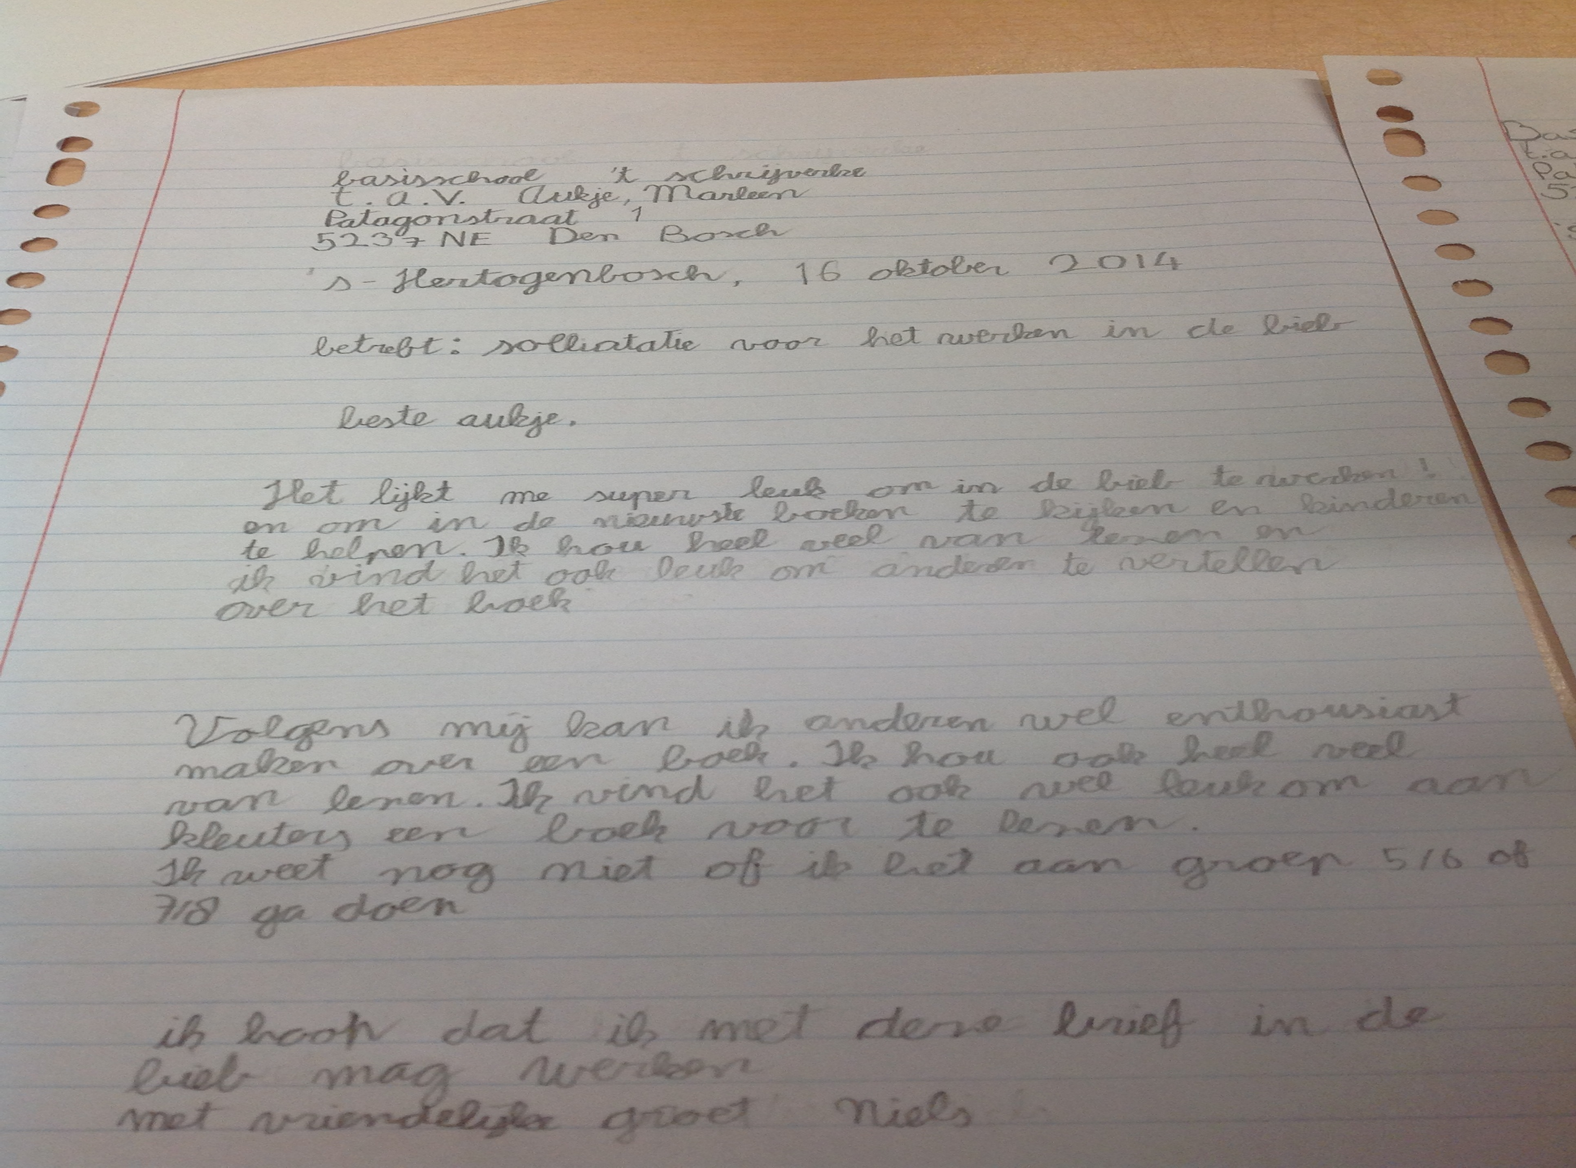 basisschool 't schrijverke
t.a.v. Aukje, Marleen
Patagonstraat 1
5237 NE Den Bosch
's-Hertogenbosch, 16 oktober 2014
betreft: solliatatie voor het werken in de bieb
beste aukje.
Het lijkt me super leuk om in de bieb te werken!
en om in de nieuwste boeken te kijken en kinderen
te helpen. Ik hou heel veel van lezen en
ik vind het ook leuk om anderen te vertellen
over het boek
Volgens mij kan ik anderen wel enthousiast
maken over een boek. Ik hou ook heel veel
van lezen. Ik vind het ook wel leuk om aan
kleuters een boek voor te lezen.
Ik weet nog niet of ik het aan groep 5/6 of
7/8 ga doen
ik hoop dat ik met deze brief in de
bieb mag werken
met vriendelijke groet Niels
Bas
t.a
Pa
5